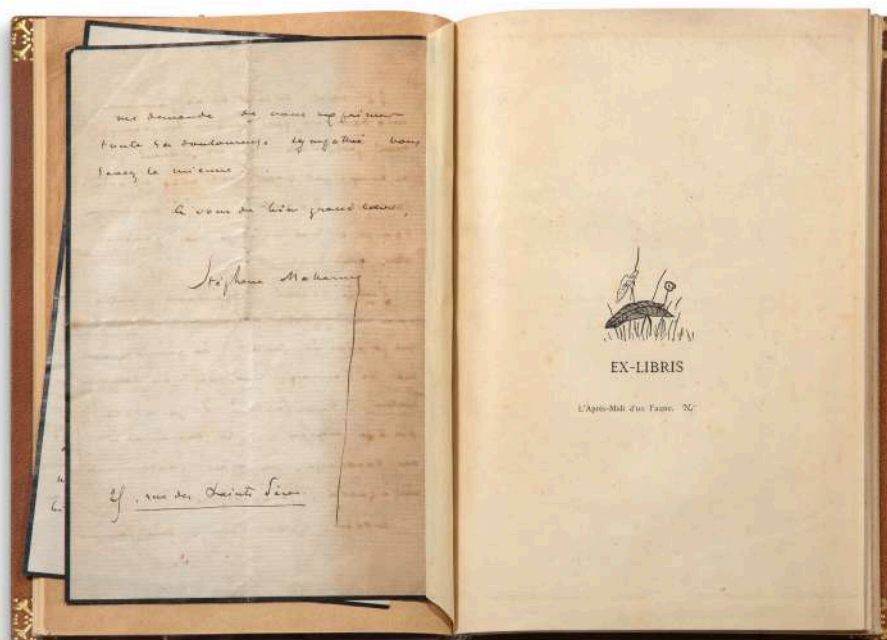 me demande de vous exprimer
toute sa douloureuse sympathie. Vous
savez la mienne.
de bien grand cœur,
Stéphane Mallarmé
rue des Saints Pères
EX-LIBRIS
L'Après-Midi d'un Faune. N.